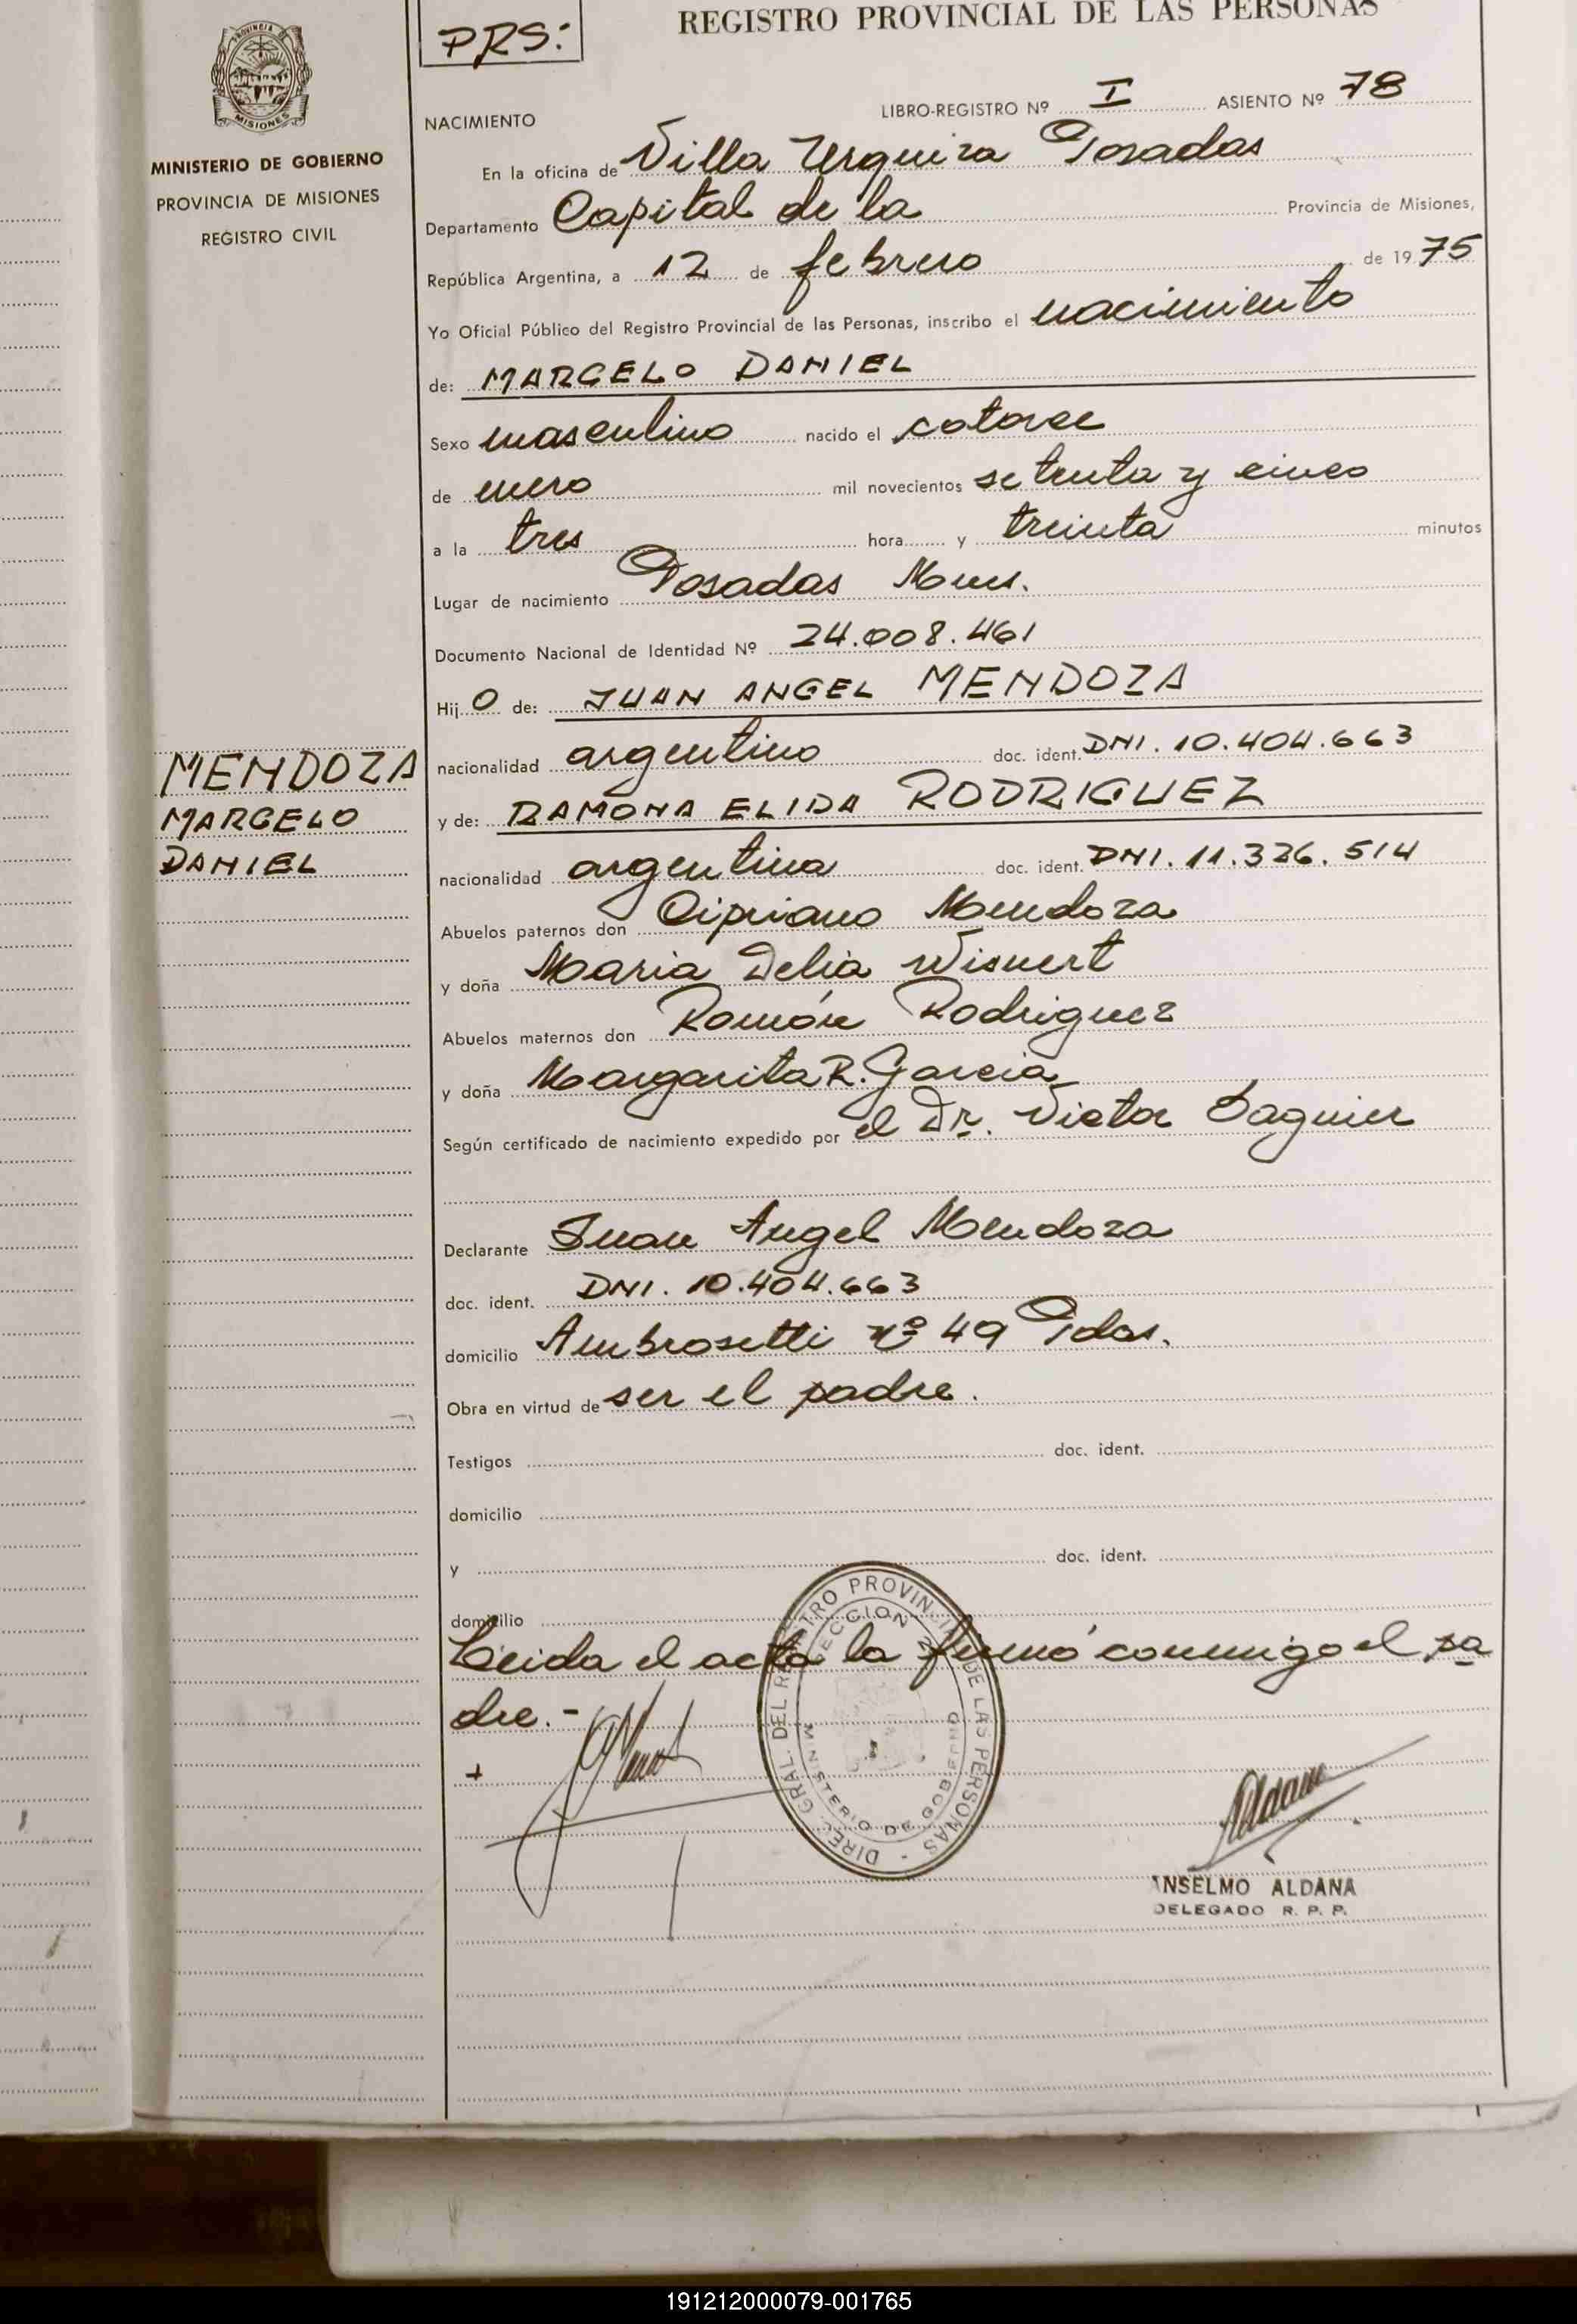 PRS:
REGISTRO PROVINCIAL DE LAS PERSONAS
MISIONES
MINISTERIO DE GOBIERNO
PROVINCIA DE MISIONES
REGISTRO CIVIL
NACIMIENTO
LIBRO-REGISTRO Nº I ASIENTO Nº 78
En la oficina de Villa Urquiza Posadas
Departamento Capital de la Provincia de Misiones,
República Argentina, a 12 de febrero de 1975
Yo Oficial Público del Registro Provincial de las Personas, inscribo el nacimiento
de: MARCELO DANIEL
Sexo masculino nacido el catorce
de enero mil novecientos setenta y cinco
a la tres hora y treinta minutos
Lugar de nacimiento Posadas Mnes.
Documento Nacional de Identidad Nº 24.008.461
Hijo de: JUAN ANGEL MENDOZA
nacionalidad argentino doc. ident. DNI. 10.404.663
y de: RAMONA ELIDA RODRIGUEZ
nacionalidad argentina doc. ident. DNI. 11.326.514
Abuelos paternos don Cipriano Mendoza
y doña Maria Delia Wisnert
Abuelos maternos don Ramón Rodriguez
y doña Margarita R. Garcia
Según certificado de nacimiento expedido por el Dr. Victor Saguier
Declarante Juan Angel Mendoza
doc. ident. DNI. 10.404.663
domicilio Ambrosetti Nº 49 Pdas.
Obra en virtud de ser el padre.
Testigos doc. ident.
domicilio
y doc. ident.
domicilio
Leida el acta la firmó conmigo el pa
dre.-
MENDOZA
MARCELO
DANIEL
DIREC. GRAL. DEL REGISTRO PROVINCIAL DE LAS PERSONAS -
SECCION 2
MINISTERIO DE GOBIERNO
Aldana
ANSELMO ALDANA
DELEGADO R. P. P.
191212000079-001765